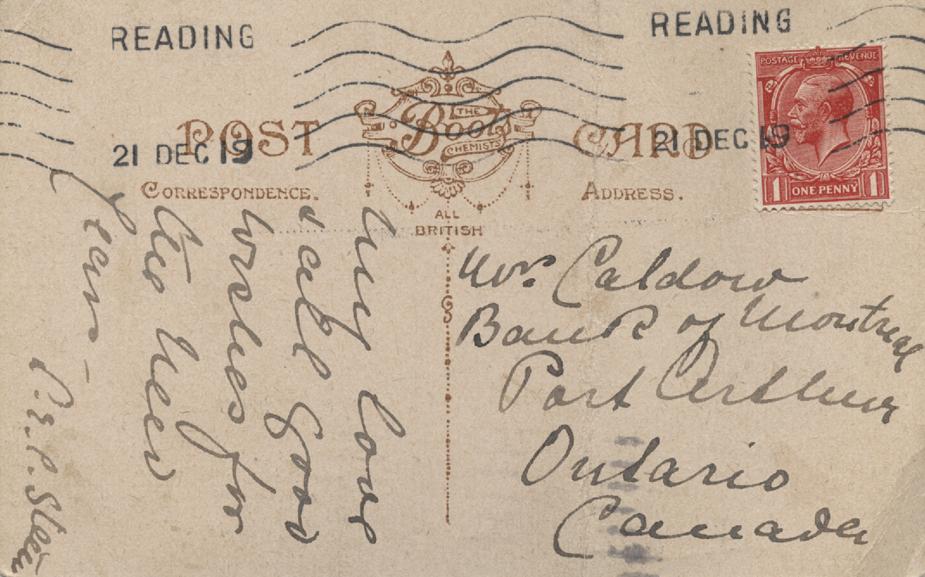 READING
READING
21 DEC 19
21 DEC 19
POST CARD
THE
Boots
CHEMISTS
CORRESPONDENCE.
ADDRESS.
ALL
BRITISH
POSTAGE REVENUE
1 ONE PENNY 1
My love
& all good
wishes for
the New
Year -
Caldow
Bank of Montreal
Port Arthur
Ontario
Canada